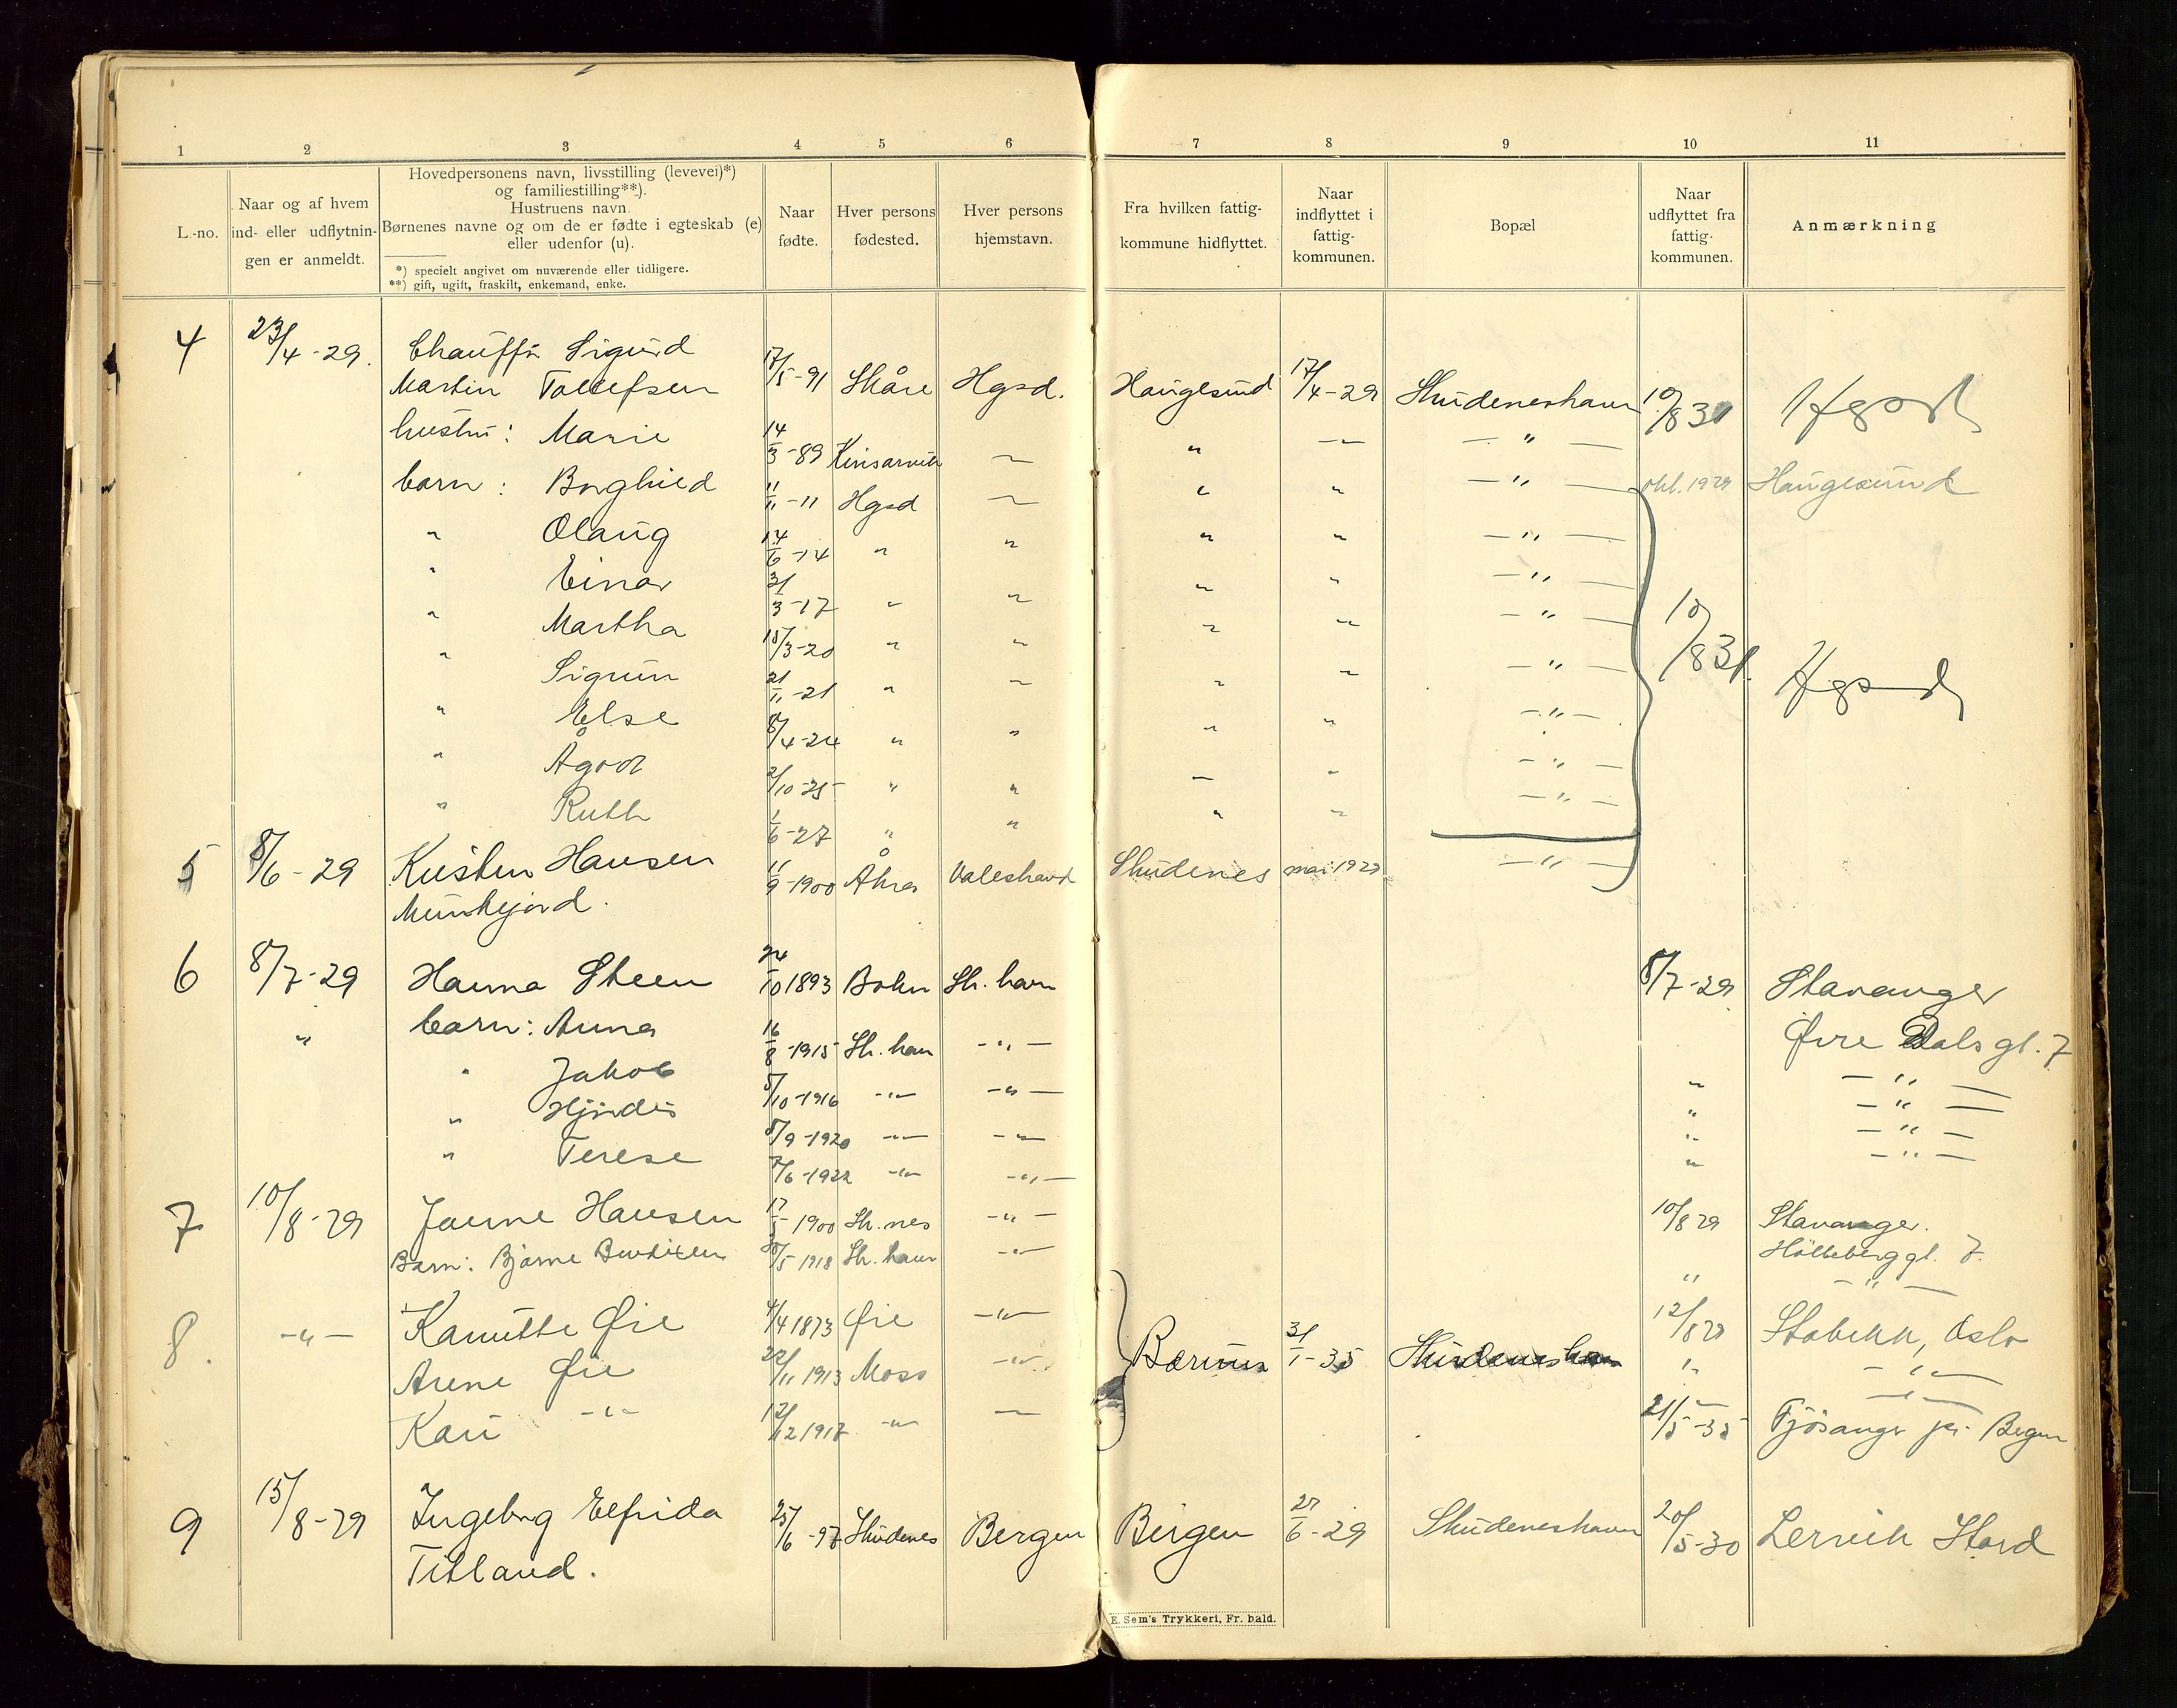 1 2 3 4 5 6 7 8 9 10 11
L.-no.
Naar og af hvem
ind- eller udflytnin-
gen er anmeldt.
Hovedpersonens navn, livsstilling (levevei)*)
og familiestilling**).
Hustruens navn.
Børnenes navne og om de er fødte i egteskab (e)
eller udenfor (u).
*) specielt angivet om nuværende eller tidligere.
**) gift, ugift, fraskilt, enkemand, enke.
Naar
fødte.
Hver persons
fødested.
Hver persons
hjemstavn.
Fra hvilken fattig-
kommune hidflyttet.
Naar
indflyttet i
fattig-
kommunen.
Bopæl
Naar
udflyttet fra
fattig-
kommunen.
Anmærkning
4 23/4-29. Chauffør Sigurd
Martin Tollefsen 17/5-91 Skåre Hgsd. Haugesund 17/4-29 Skudeneshavn 10/8 31 Hgsd
hustru: Marie 14/3-89 Kinsarvik — " — — " —
barn: Borghild 11/11-11 Hgsd — " " — " — okt. 1929 Haugesund
" Olaug 14/6-14 " " " " — " —
" Einar 31/3-17 " " " " — " —
" Martha 15/3-20 " " " " — " — 10/8 31. Hgsd
" Sigrun 21/11-21 " " " " — " —
" Else 8/4-24 " " " " — " —
" Ågot 2/10-25 " " — " — " —
" Ruth 1/6-27 " " " " — " —
5 8/6-29 Kristen Hansen 11/9-1900 Åkra Skudenes mai 1929 — " —
Munkejord.
6 8/7-29 Hanna Steen 24/10 1893 Bokn Sk. havn 8/7-29 Stavanger
" barn: Anna 16/8-1915 Sk. havn — " — Øvre Dalsgt. 7
" Jakob 5/10-1916 — " — — " — " — " —
" Hjørdis 8/9-1920 — " — — " — " — " —
" Terese 7/6-1922 — " — — " — " — " —
" — " —
7 10/8-29 Hansen 17/5-1900 Sk. nes — " — 10/8 29 Stavanger.
Barn: Bjarne 30/5 1918 Sk. havn — " — gt. 7.
" — " —
8. — " — Øie 4/4 1873 Øie — " — 12/8 29 Stabekk, Oslo
Arene Øie 22/11 1913 Moss — " — Bærum 31/1-35 Skudeneshavn " — " —
Kari — " — 12/12 1917 — " — — 21/5-35 Fjøsanger pr. Bergen
9 15/8-29 Ingeborg Elfrida 25/6-97 Skudenes Bergen Bergen 27/6-29 Skudeneshavn 20/5-30 Lervik Stord
Titland.
E. Sem's Trykkeri, Fr. hald.